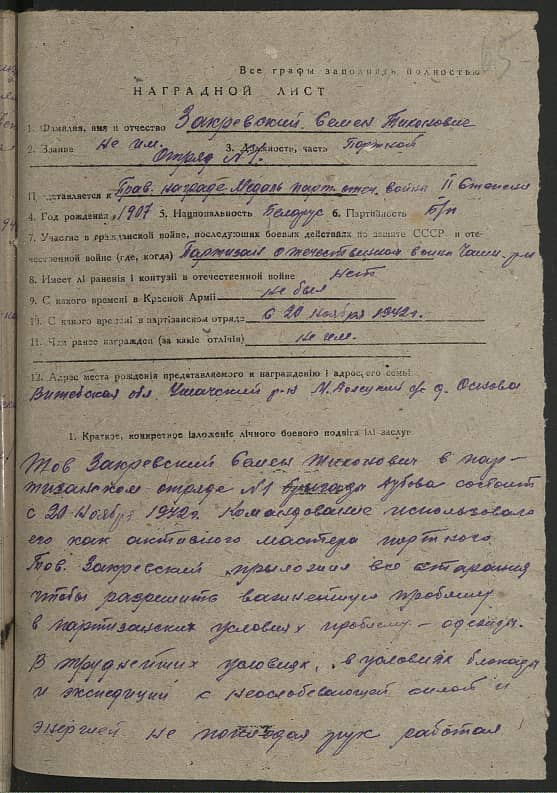 65
Все графы заполнить полностью
НАГРАДНОЙ ЛИСТ
1. Фамилия, имя и отчество Закревский Семен Тихонович
2. Звание не им. 3. Должность, часть Портной
Отряд №1.
Представляется к Прав. награде Медаль парт. отеч. война II степени
4. Год рождения 1907 5. Национальность Белорус 6. Партийность Б/п
7. Участие в гражданской войне, последующих боевых действіях по защите СССР и оте-
чественной войне (где, когда) Партизан отечественной войны Чашн. р-н
8. Имеет лі раненія і контузіі в отечественной войне Нет
9. С какого времені в Красной Арміі не был
10. С какого времені в партізанском отряде с 20 Ноября 1942 г.
11. Чем ранее награжден (за какіе отлічія) не им.
12. Адрес места рожденія представляемого к награжденію і адрес его семьі
Витебская обл. Ушачский р-н с/с д. Основа
1. Краткое, конкретное ізложеніе лічного боевого подвіга ілі заслуг
Тов Закревский Семен Тихонович в пар-
тизанском отряде №1 бригады Дубова состоит
с 20 Ноября 1942 г. Командование использовало
его как активного мастера портного
Тов. Закревский прыложил все старания
чтобы разрешить важнейшую проблему
в партизанских условиях проблему – одежды.
В труднейших условиях, в условиях блокады
и экспедиций с неослобевающей силой и
энергией не покладая рук работал